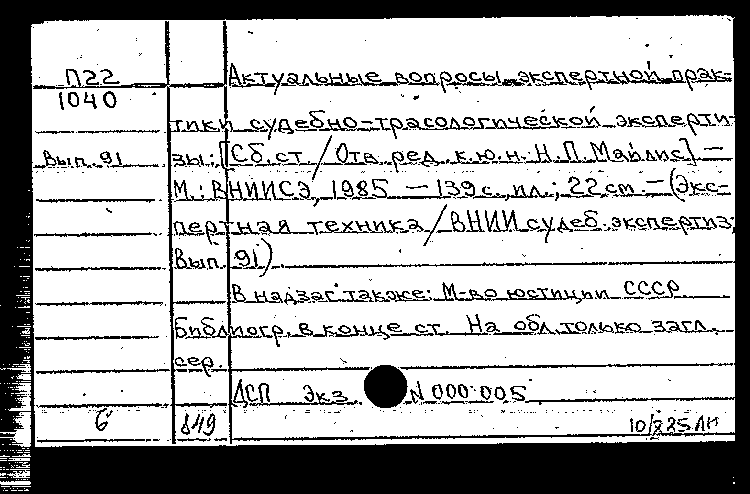 П22
1040
Вып. 91
Актуальные вопросы экспертной прак-
тики судебно-трасологической эксперти-
зы: [Сб. ст / Отв. ред. к.ю.н. Н.П. Майлис]. -
М.: ВНИИСЭ, 1985 - 139 с., ил.; 22 см. - (Экс-
пертная техника / ВНИИ судеб. экспертиз;
Вып. 91)
В надзаг. также: М-во юстиции СССР
Библиогр. в конце ст. На обл. только загл.
сер.
ДСП Экз N 000 005
б 849